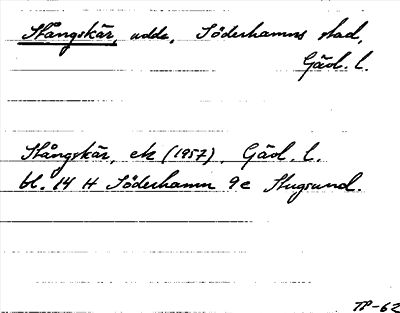 Stångskär, udde, Söderhamns stad,
Gävl. l.
Stångskär, ek (1957), Gävl. l.
bl. 14 H Söderhamn 9e Stugsund.
TP-62